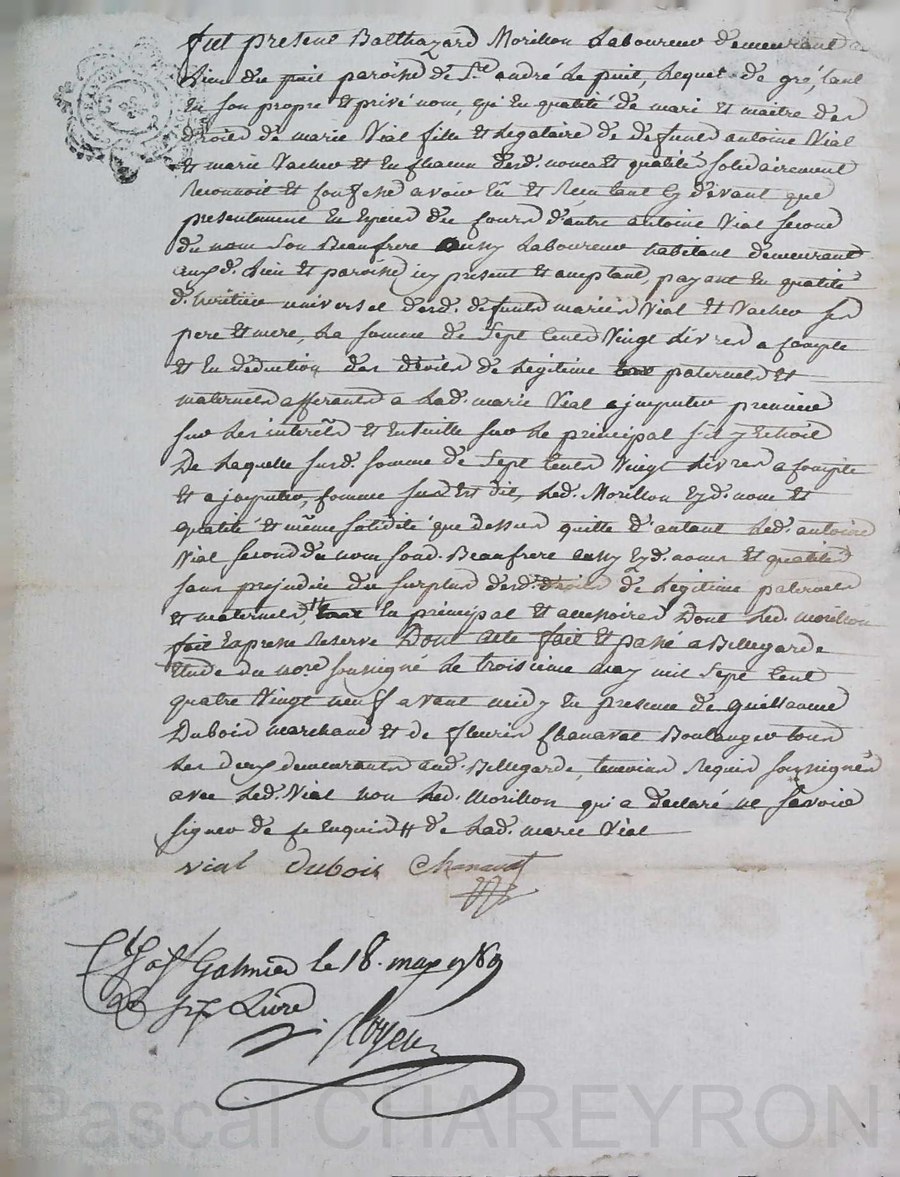 fut present Balthazard Morillon Laboureur demeurant au
Lieu du puit paroisse de St andré Le puit, Lequel de gré, tant
En son propre Et privé nom, qu'En qualité de mari Et maitre des
droits de marie Vial fille Et Legataire de defunt antoine Vial
Et marie Vacher Et En chacun desd. noms Et qualité solidairement
Reconnoit Et confesse avoir Eû Et Reçu tant Cy devant que
presentement En Especes du cours d'autre antoine Vial second
du nom son Beaufrere aussy Laboureur habitant demeurant
auxd. Lieu Et paroisse icy present Et acceptant, payant En qualité
d'heritier universel desd. defunts mariés Vial Et Vacher ses
pere Et mere, La somme de Sept Cents Vingt Livres a compte
Et En deduction des droits de Legitime paternels Et
maternels afferants a Lad. marie Vial a jmputer premier
sur Les interêts Et Ensuitte sur Le principal s'il y Echoit
De Laquelle susd. somme de Sept Cents Vingt Livres a compte
Et a jmputer, comme sus Est dit, Led. Morillon Ezd. nom Et
qualité Et même solidité que dessus quitte d'autant Led. antoine
Vial second du nom sond. Beaufrere aussy Ezd. noms Et qualités
sans prejudice du surplus desd. droits de Legitime paternels
Et maternels, # En principal Et accessoires Dont Led. Morillon
fait Expresse Reserve Dont acte fait Et passé a Bellegarde
Etude du nore. soussigné Le troisieme may mil Sept Cent
quatre Vingt neuf avant midy En presence de Guillaume
Dubois marchand Et de fleurir Chanavat Boulanger tous
Les deux demeurants aud. Bellegarde, temoins Requis soussignés
avec Led. Vial non Led. Morillon qui a declaré ne sçavoir
signer de ce Enquis # de Lad. marie Vial
vial Dubois Chanavat
Galmier le 18. may 1789
Livre
Pascal CHAREYRON